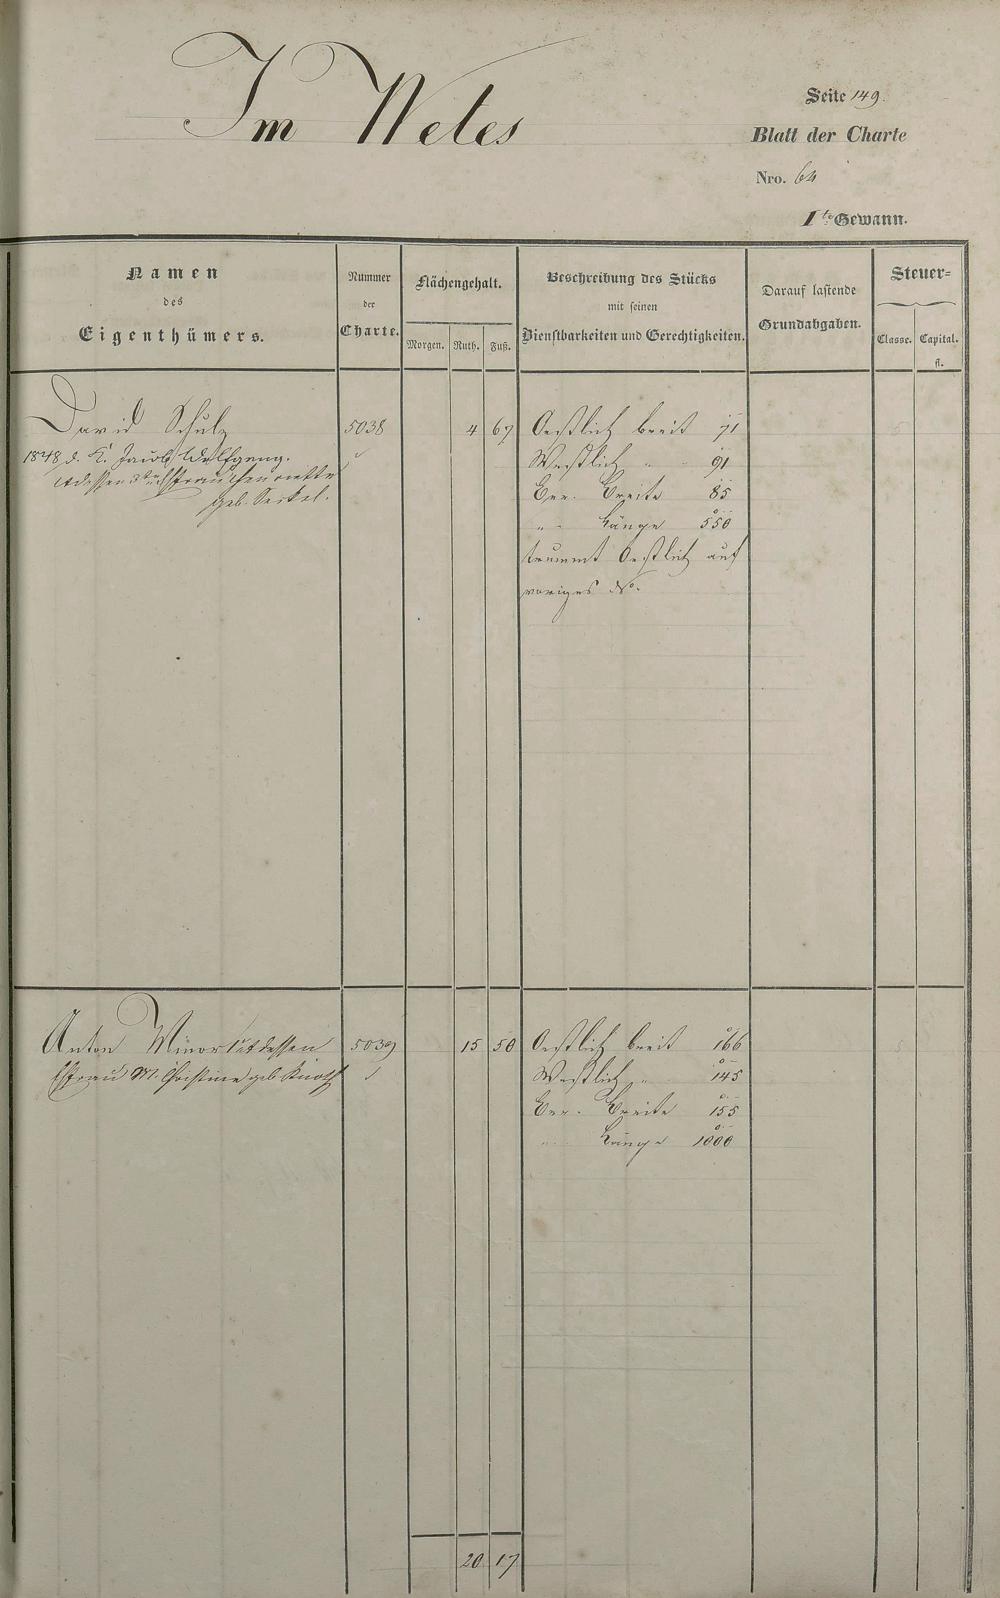 Im Wetes
Seite 149.
Blatt der Charte
Nro. 64
1te Gewann.
Namen
des
Eigenthümers.
Nummer
der
Charte.
Flächengehalt.
Morgen. Ruth. Fuß.
Beschreibung des Stücks
mit seinen
Dienstbarkeiten und Gerechtigkeiten.
Darauf lastende
Grundabgaben.
Steuer-
Classe. Capital.
fl.
David Schulz 5038 4 67 Oestlich breit 71
1848 d. K. Jacob Wolfgang. Westlich " 91
geb. Seikel. Ber. Breite 85
" Länge 550
trummt Oestlich auf
voriges No.
Anton Minor 1ut dessen 5039 15 50 Oestlich breit 166
Ehfrau M. Christine geb. Knoth Westlich " 145
Ber. Breite 155
" Länge 1000
20 17